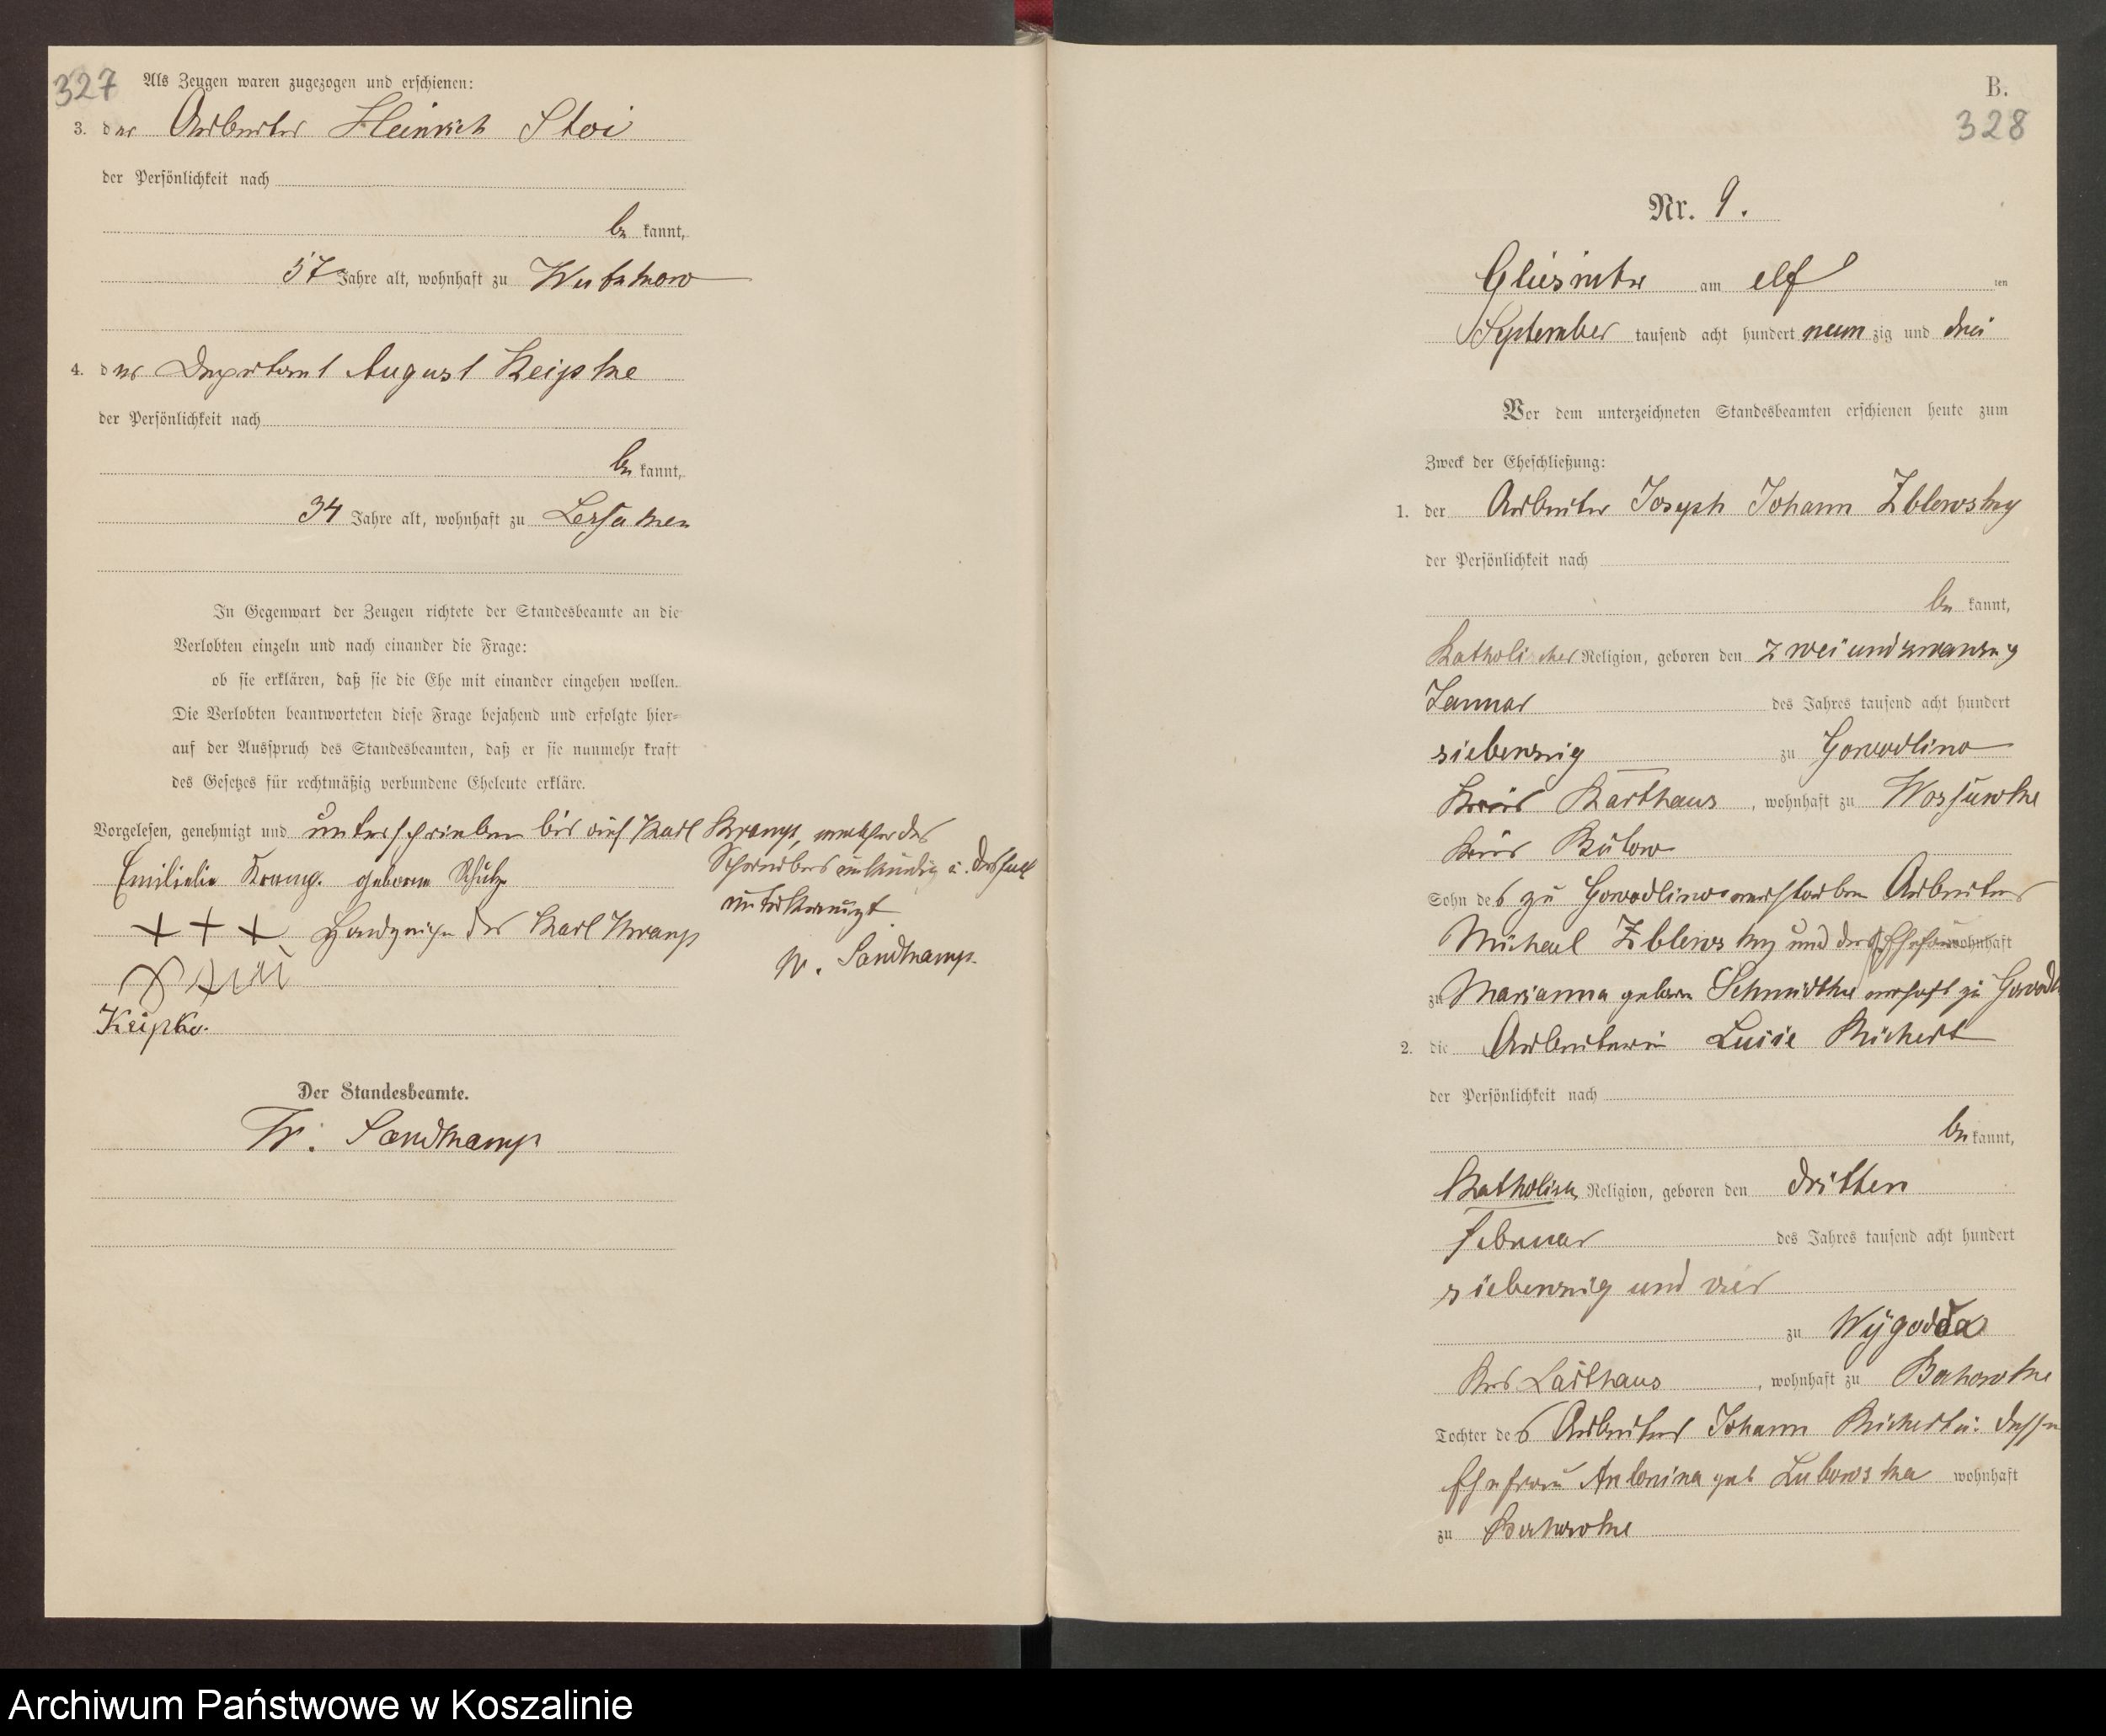 327 Als Zeugen waren zugezogen und erschienen:
3. der Arbeiter Heinrich Stoi
der Persönlichkeit nach
be kannt,
57 Jahre alt, wohnhaft zu Wutzkow
4. der August Keipke
der Persönlichkeit nach
be kannt,
34 Jahre alt, wohnhaft zu Lessaken
In Gegenwart der Zeugen richtete der Standesbeamte an die
Verlobten einzeln und nach einander die Frage:
ob sie erklären, daß sie die Ehe mit einander eingehen wollen.
Die Verlobten beantworteten diese Frage bejahend und erfolgte hier-
auf der Ausspruch des Standesbeamten, daß er sie nunmehr kraft
des Gesetzes für rechtmäßig verbundene Eheleute erkläre.
Vorgelesen, genehmigt und unterschrieben bis auf Karl Kramp, welcher des
Schreibens unkundig u. deshalb
unterkreuzt
W. Sandkamp
Emilie Kramp. geborene Schulz
+ + + Handzeichen des Karl Kramp
Keipke.
Der Standesbeamte.
W. Sandkamp
B.
328
Nr. 9.
am elf ten
September tausend acht hundert neun zig und drei
Vor dem unterzeichneten Standesbeamten erschienen heute zum
Zweck der Eheschließung:
1. der Arbeiter Joseph Johann Zblewsky
der Persönlichkeit nach
be kannt,
Katholischer Religion, geboren den zweiundzwanzig
Januar des Jahres tausend acht hundert
siebenzig zu Gowidlino
Kreis Karthaus, wohnhaft zu Wossowke
Kreis Bütow
Sohn des zu Gowidlino verstorbenen Arbeiters
Michael Zblewsky und der Ehefrau wohnhaft
zu Marianna geboren Schmidtke zu
2. die Arbeiterin Luise Richert
der Persönlichkeit nach
be kannt,
Katholisch Religion, geboren den dritten
Februar des Jahres tausend acht hundert
siebenzig und vier
zu Wygodda
Kreis Carthaus, wohnhaft zu
Tochter des Arbeiters Johann Richert u. dessen
Ehefrau Antonina geb wohnhaft
zu